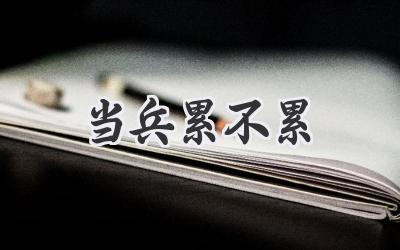 当兵累不累